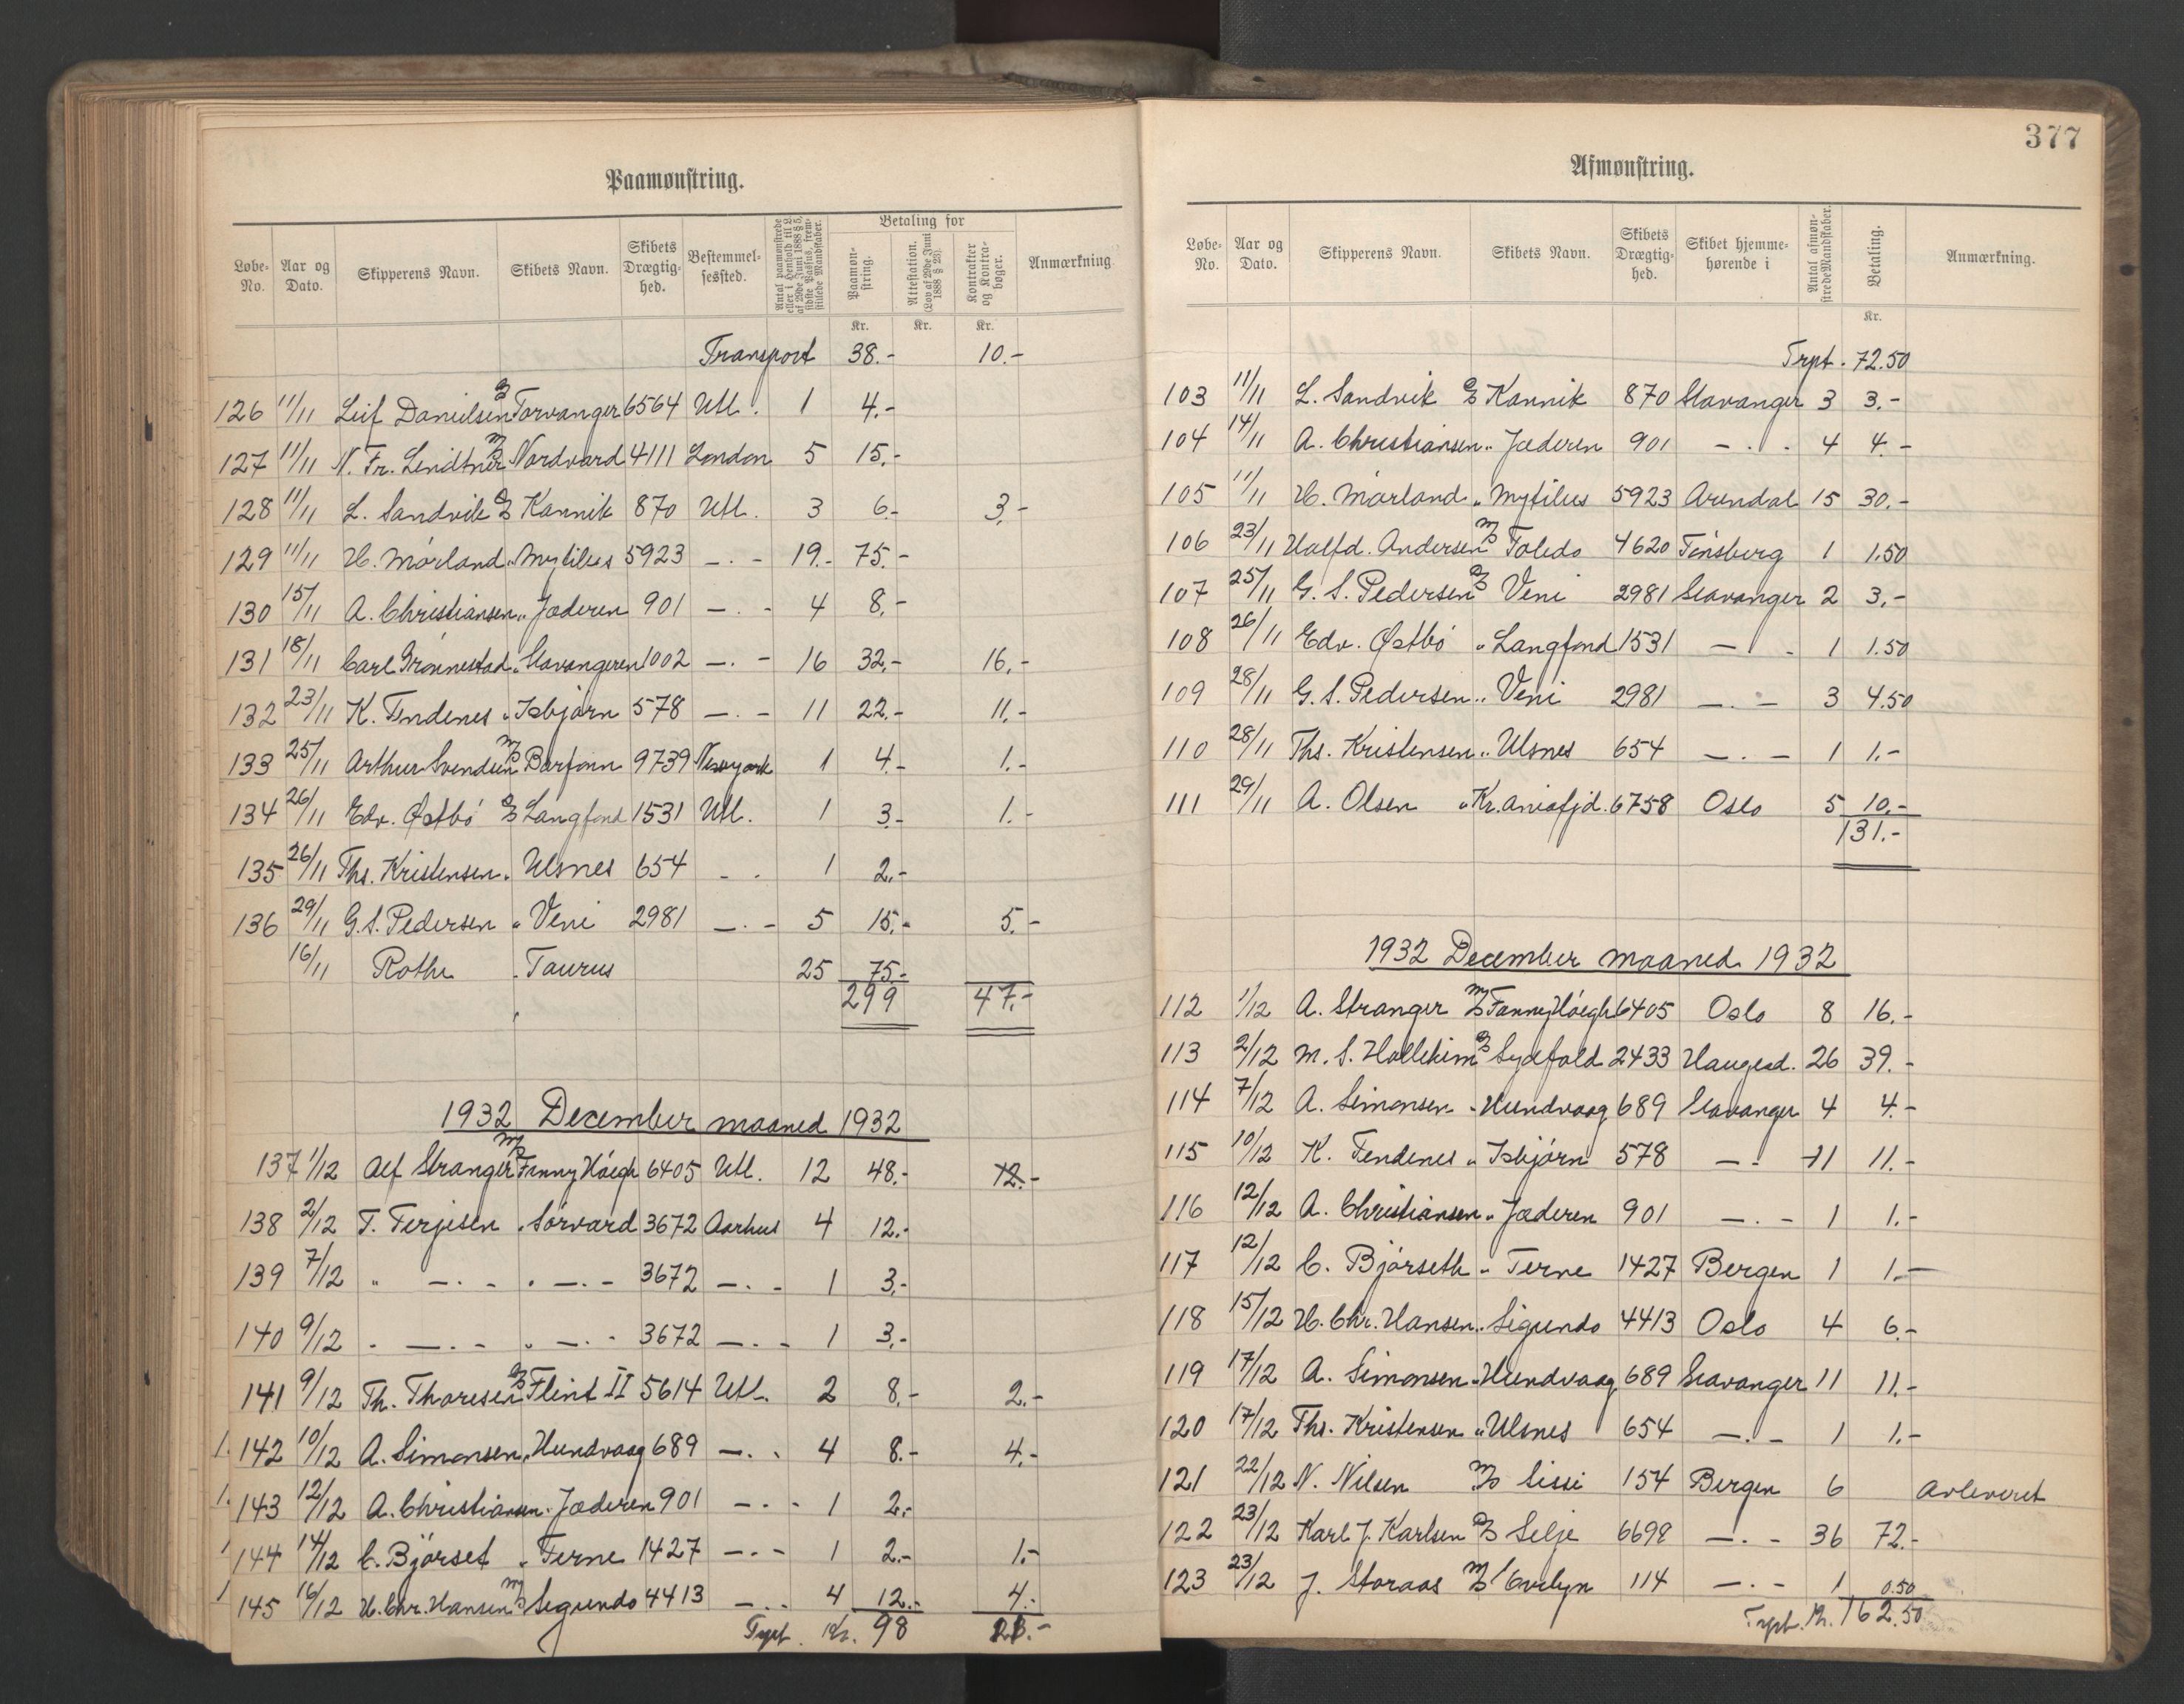 Paamønstring.
Løbe-No. Aar og Dato. Skipperens Navn. Skibets Navn. Skibets Drægtig-hed. Bestemmel-sessted. Antal paamønstrede eller i Henhold til L. af 29de Juni 1888 § 5, sidste Passus, frem-stillede Mandskaber. Betaling for Paamøn-string. Attestation. (Lov af 29de Juni 1888 § 23). Kontrakter og Kontra-bøger. Anmærkning
Kr. Kr. Kr.
Transport 38.- 10.-
126 11/11 Leif Danielsen D/S Torvanger 6564 Utl. 1 4.-
127 11/11 N. Fr. Lindtner M/S Nordvard 4111 London 5 15.-
128 11/11 L. Sandvik D/S Kannik 870 Utl. 3 6.- 3.-
129 11/11 H. Mørland „ Mytilus 5923 —.- 19.- 75.-
130 15/11 A. Christiansen „ Jæderen 901 —.- 4 8.-
131 18/11 Carl Grønnestad „ Stavangeren 1002 —.- 16 32.- 16.-
132 23/11 K. Tendenes „ Isbjørn 578 —.- 11 22.- 11.-
133 25/11 Arthur Svendsen M/S Barfonn 9739 Newyork 1 4.- 1.-
134 26/11 Edv. Østbø D/S Langfond 1531 Utl. 1 3.- 1.-
135 26/11 Ths. Kristensen „ Ulsnes 654 - - 1 2.-
136 29/11 G. S. Pedersen „ Veni 2981 —.- 5 15.- 5.-
16/11 Rothe „ Taurus 25 75.-
299 47.-
1932 December maaned 1932
137 1/12 Alf Stranger M/S Fanny Høegh 6405 Utl. 12 48.- 12.-
138 2/12 T. Terjesen „ Sørvard 3672 Aarhus 4 12.-
139 7/12 „ —.- „ —.- 3672 —.- 1 3.-
140 9/12 „ —.- „ —.- 3672 —.- 1 3.-
141 9/12 Th. Thoresen D/S Flint II 5614 Utl. 2 8.- 2.-
1. 142 10/12 A. Simonsen „ Hundvaag 689 —.- 4 8.- 4.-
1. 143 12/12 A. Christiansen „ Jæderen 901 —.- 1 2.-
1 144 14/12 C. Bjørset „ Terne 1427 —.- 1 2.- 1.-
1 145 16/12 H. Chr. Hansen M/S Segundo 4413 —.- 4 12.- 4.-
Trpt. Kr. 98 23.-
377
Afmønstring.
Løbe-No. Aar og Dato. Skipperens Navn. Skibets Navn. Skibets Drægtig-hed. Skibet hjemme-hørende i Antal afmøn-strede Mandskaber. Betaling. Anmærkning.
Kr.
Trpt. 72.50
103 11/11 L. Sandvik D/S Kannik 870 Stavanger 3 3.-
104 14/11 A. Christiansen „ Jæderen 901 —.- 4 4.-
105 11/11 H. Mørland „ Mytilus 5923 Arendal 15 30.-
106 23/11 Halfd. Andersen M/S Toledo 4620 Tønsberg 1 1.50
107 25/11 G. S. Pedersen D/S Veni 2981 Stavanger 2 3.-
108 26/11 Edv. Østbø „ Langfond 1531 — - 1 1.50
109 28/11 G. S. Pedersen „ Veni 2981 —.- 3 4.50
110 28/11 Ths. Kristensen „ Ulsnes 654 —.- 1 1.-
111 29/11 A. Olsen „ Kr.aniafjd. 6758 Oslo 5 10.-
131.-
1932 December maaned 1932
112 1/12 A. Stranger M/S Fanny Høegh 6405 Oslo 8 16.-
113 2/12 M. S. Hallekim D/S Sydfold 2433 Haugesd. 26 39.-
114 7/12 A. Simonsen „ Hundvaag 689 Stavanger 4 4.-
115 10/12 K. Tendenes „ Isbjørn 578 —.- 11 11.-
116 12/12 A. Christiansen „ Jæderen 901 —.- 1 1.-
117 12/12 C. Bjørseth „ Terne 1427 Bergen 1 1.-
118 15/12 H. Chr. Hansen „ Sigundo 4413 Oslo 4 6.-
119 17/12 A. Simonsen „ Hundvaag 689 Stavanger 11 11.-
120 17/12 Ths. Kristensen „ Ulsnes 654 —.- 1 1.-
121 22/12 N. Nilsen M/S Sissi 154 Bergen 6 Avleveret
122 23/12 Karl J. Karlsen D/S Selje 6698 —.- 36 72.-
123 23/12 J. Storaas M/S Evelyn 114 —.- 1 0.50
Trpt. Kr. 162.50